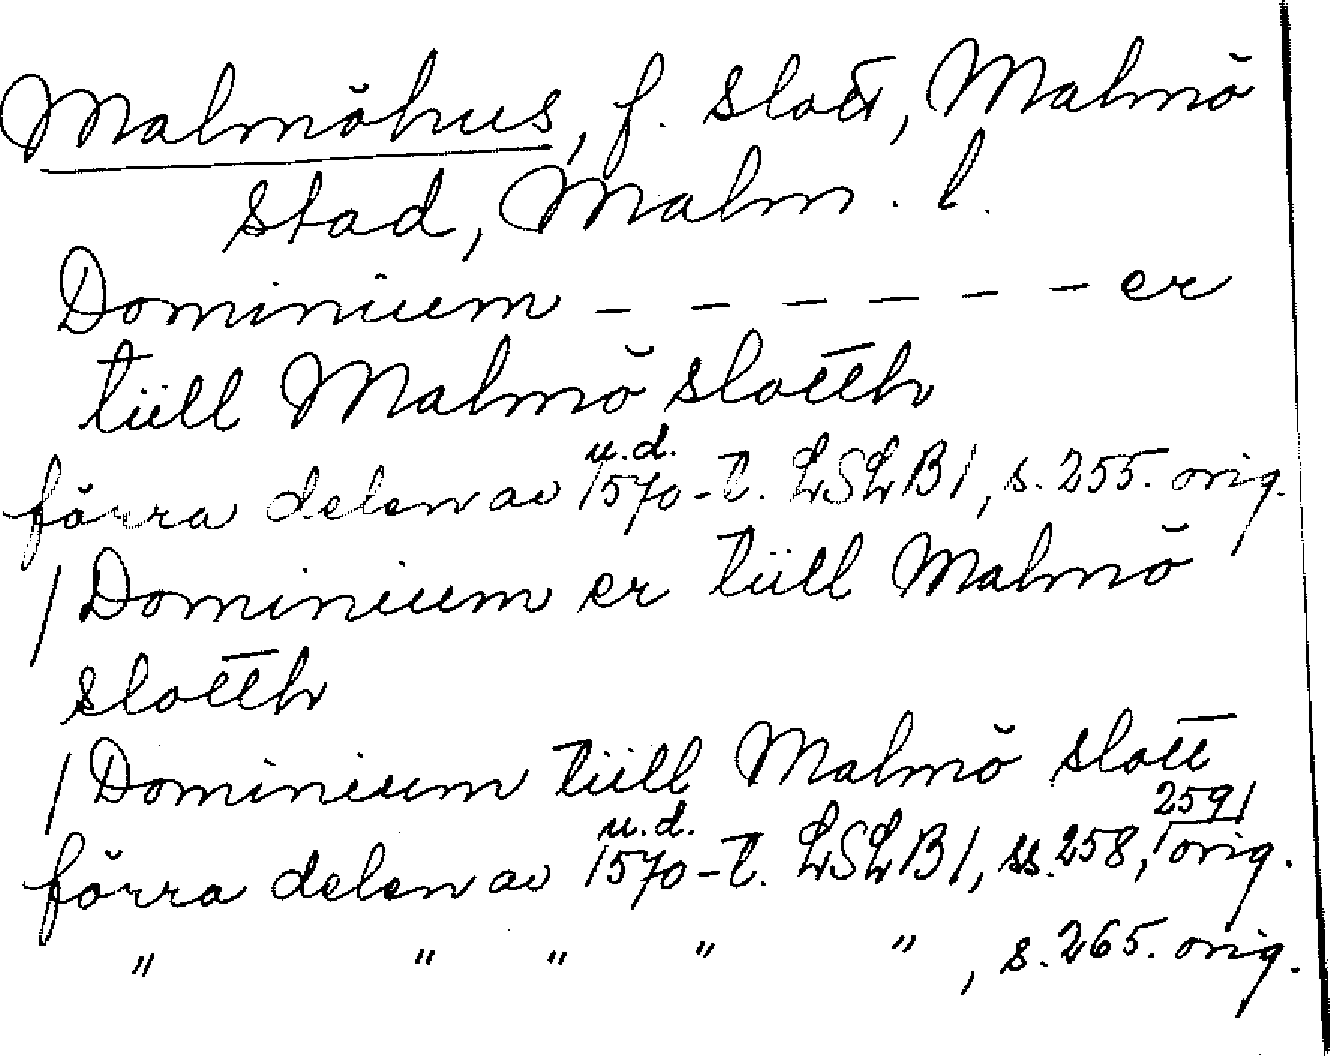 Malmöhus, f. slott, Malmö
stad, Malm. l.
Dominium – – – – – – er
tüll Malmö slotth
u.d.
förra delen av 1570-t. LSLB1, s. 255. orig.
/ Dominium er tüll Malmö
slotth
/ Dominium tüll Malmö slott
u.d. 259/
förra delen av 1570-t. LSLB1, ss. 258, orig.
" " " " " , s. 265. orig.